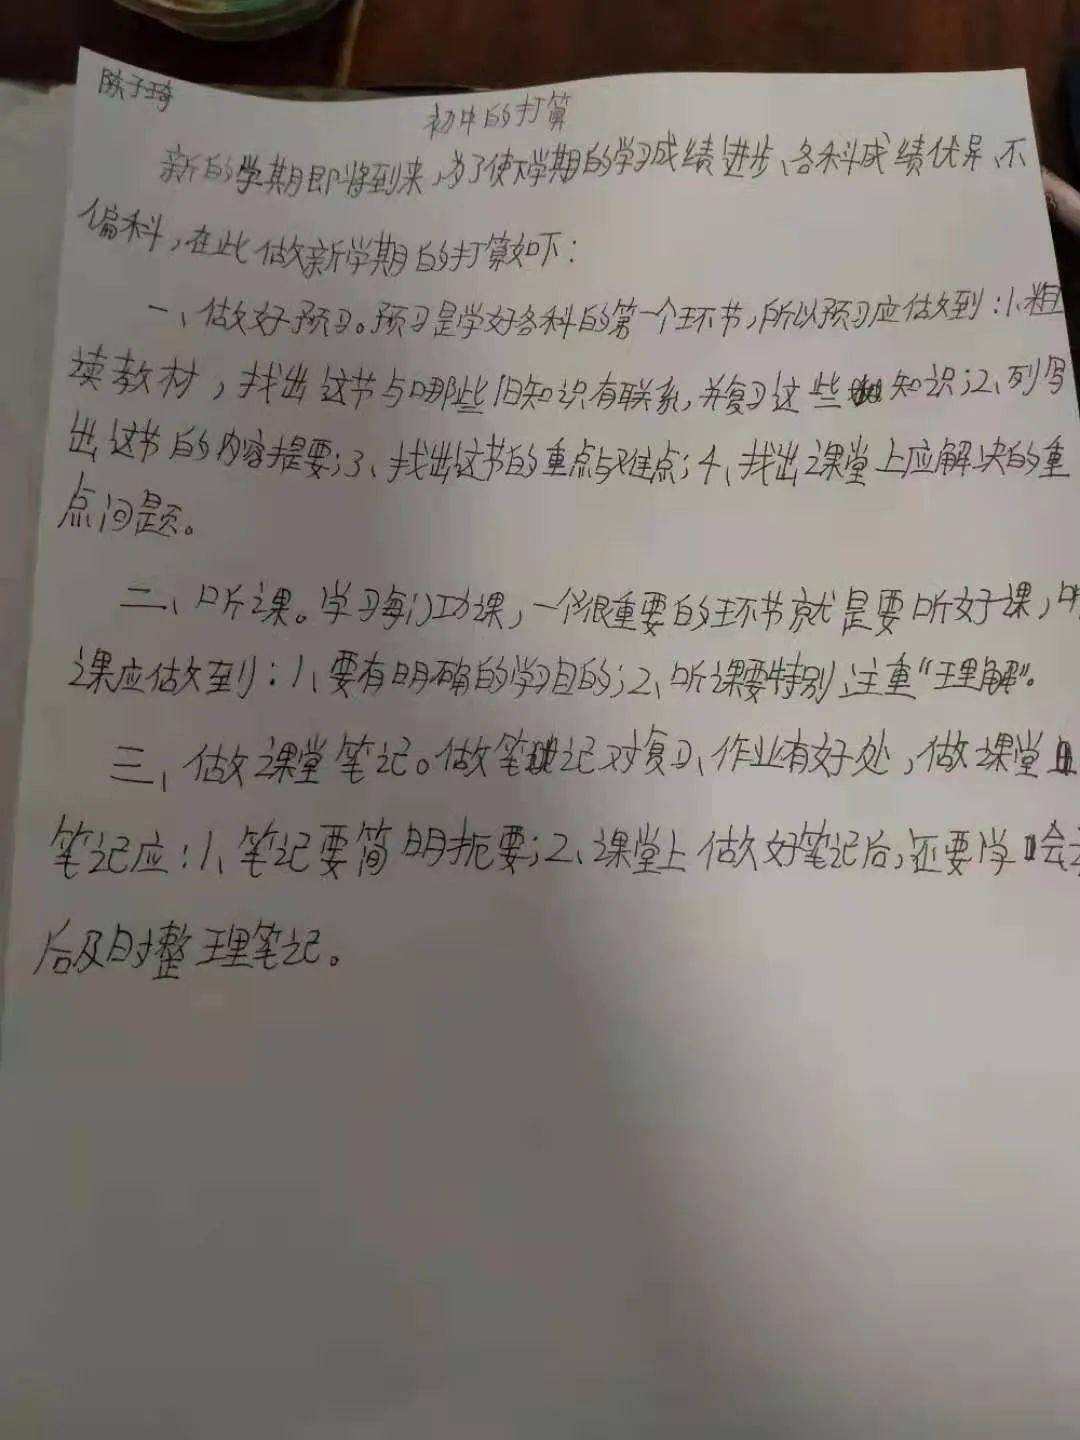 陈子琦
初中的打算
新的学期即将到来,为了使下学期的学习成绩进步、各科成绩优异、不
偏科,在此做新学期的打算如下:
一、做好预习。预习是学好各科的第一个环节,所以预习应做到:1、粗
读教材,找出这节与哪些旧知识有联系,并复习这些知识;2、列写
出这节的内容提要;3、找出这节的重点与难点;4、找出课堂上应解决的重
点问题。
二、听课。学习每门功课,一个很重要的环节就是要听好课,听
课应做到:1、要有明确的学习目的;2、听课要特别注重“理解”。
三、做课堂笔记。做笔记对复习、作业有好处,做课堂
笔记应:1、笔记要简明扼要;2、课堂上做好笔记后,还要学会
后及时整理笔记。